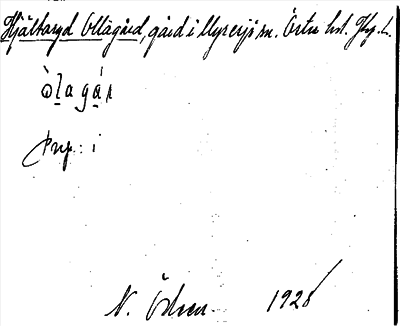 Hjältaryd Ollagård, gård i Myresjö sn. Östra hd. Jkp. L.
òlagár
Prep.: i
N. Ödeen. 1928